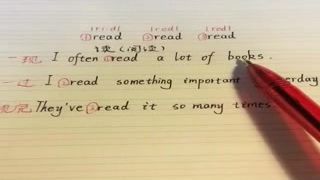 [ri:d] [red] [red]
①read ②read ③read
读(阅读)
一现 I often ①read a lot of books.
一过 I ②read something important erday
现完 They've ③read it so many times.